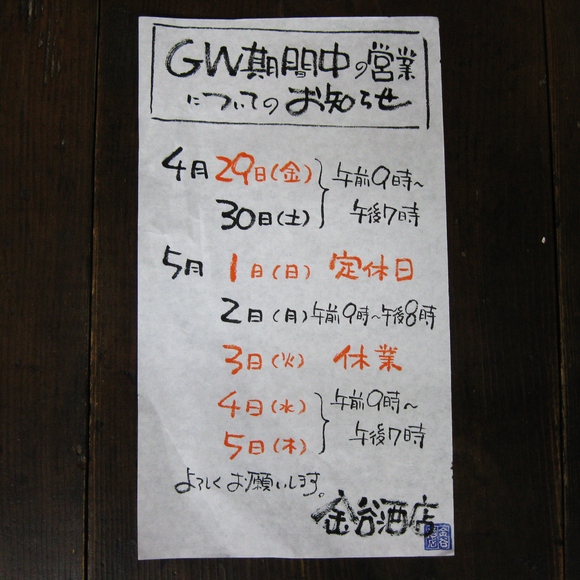 GW期間中の営業
についてのお知らせ
4月29日(金) 午前9時~
30日(土) 午後7時
5月1日(日) 定休日
2日(月)午前9時~午後8時
3日(火) 休業
4日(水) 午前9時~
5日(木) 午後7時
よろしくお願いします。
金谷酒店